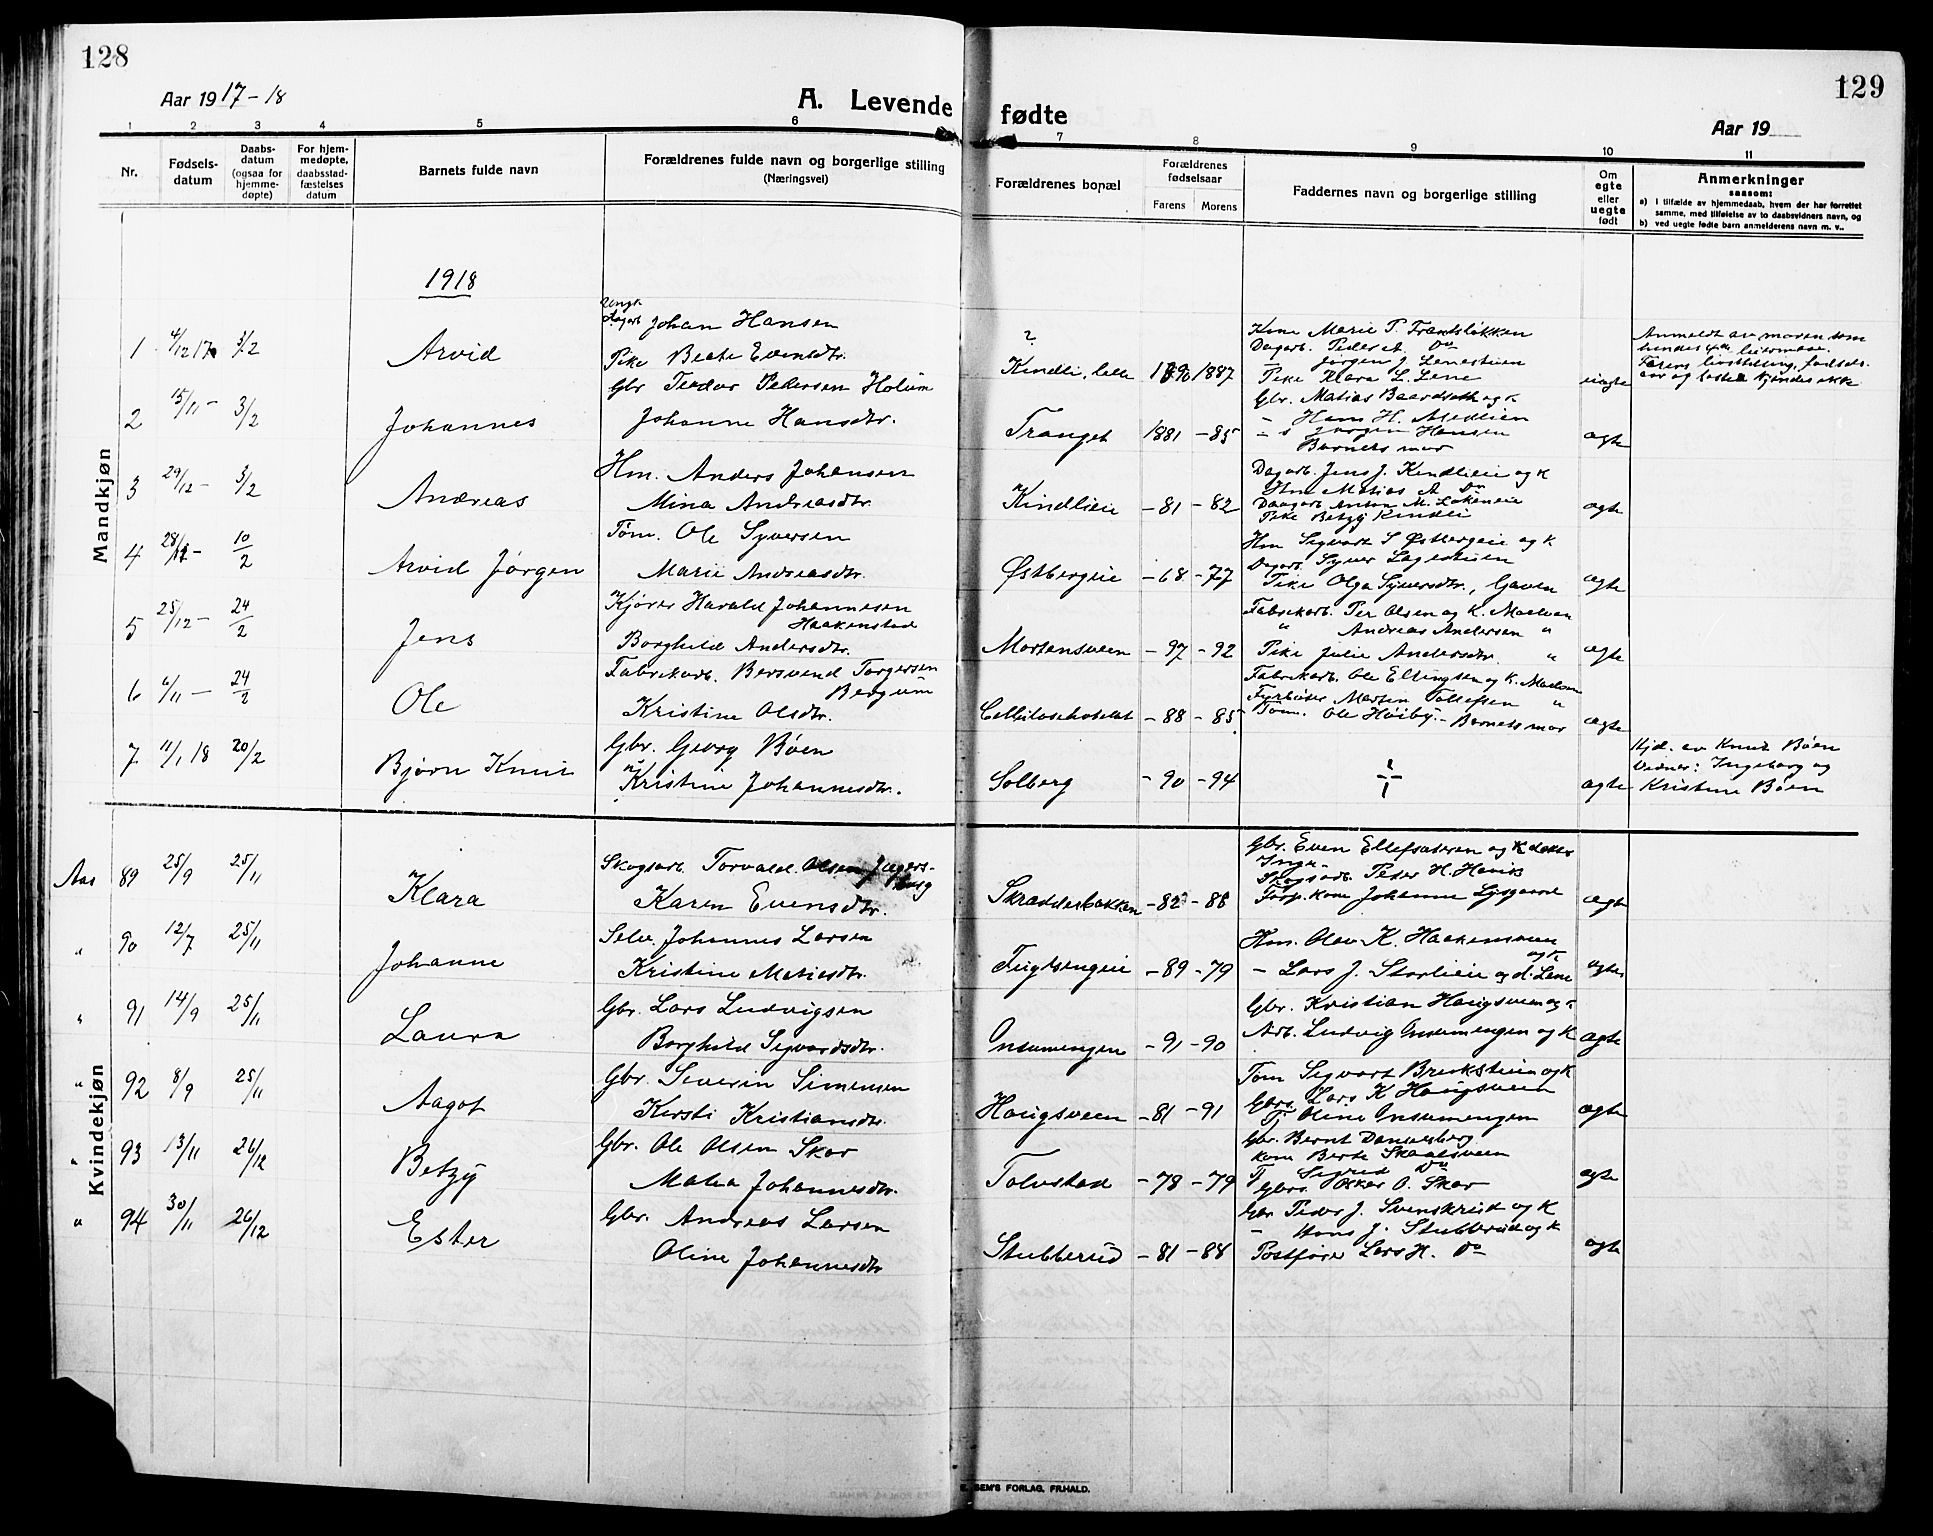 128
129
Aar 1917-18
A. Levende fødte
Aar 19
1 2 3 4 5 6 7 8 9 10 11
Nr.
Fødsels-
datum
Daabs-
datum
(ogsaa for
hjemme-
døpte)
For hjem-
medøpte,
daabsstad-
fæstelses
datum
Barnets fulde navn
Forældrenes fulde navn og borgerlige stilling
(Næringsvei)
Forældrenes bopæl
Forældrenes
fødselsaar
Farens Morens
Faddernes navn og borgerlige stilling
Om
egte
eller
uegte
født
Anmerkninger
saasom:
a) i tilfælde av hjemmedaab, hvem der har forrettet
samme, med tilføielse av to daabsvidners navn, og
b) ved uegte fødte barn anmelderens navn m. v..
Mandkjøn
1918
Ungk. Dagarb. Johan Hansen
1 4/12 17 3/2 Arvid
Pike Beate Evensdtr.
?
Kindli, 1890 1887
Kone Marie P. Frantsløkken
Dagarb. Peder A. Do
Jørgen J. Lenestuen
Pike Klara L. Lene
uægte
Anmeldt av moren som
Farens livsstilling, fødsels-
aar og kjendes ikke
Gbr Teodor Pedersen Holum
2 15/11 - 3/2 Johannes
Johanne Hansdtr.
Tranget 1881 - 85
Gbr. Matias Baardseth og k
- Hans H. Asedlien
- Jørgen Hansen
Barnets mor
ægte
Hm. Anders Johansen
3 29/12 - 3/2 Andreas
Mina Andreasdtr.
Kindlieie - 81 - 82
Dagarb. Jens J. Kindlieie og K
Hm Matias A Do
Daagarb. Anton M. Løkeneie
Pike Betzy Kindli
ægte
Tøm. Ole Syversen
4 28/12 - 10/2 Arvid Jørgen
Marie Andreasdtr.
Østbergeie - 68 - 77
Hm Sigvart S Østbergeie og K
Dagarb. Syver Lagestuen
Pike Olga Syversdtr., Gaven
ægte
Kjører Harald Johannesen
Haakenstad
5 25/12 - 24/2 Jens
Borghild Andersdtr.
Mortensveen - 97 - 92
Fabrikarb. Per Olsen og K. Maelven
" Andreas Andersen "
Pike Julie Andersdtr. "
ægte
Fabrikarb. Bersvend Torgersen
Bergum
6 6/11 - 24/2 Ole
Kristine Olsdtr.
Cellulosehotellet - 88 - 85
Fabrikarb. Ole Ellingsen og K. Maelven
Fyrbøter Morten Tollefsen "
Tøm. Ole Høiby. - Barnets mor
ægte
Gbr. Georg Bøen
7 11/1 18 20/2 Bjørn Knut
Kristine Johannesdtr.
Solberg - 90 - 94
- ÷ -
ægte
Hjd. av Knut Bøen
Vidner: Ingeborg og
Kristine Bøen
Kvindekjøn
Skogsarb. Torvald Olsen
Aas 89 25/9 25/11 Klara
Karen Evensdtr.
Skrædderbakken - 82 - 88
Gbr. Even Ellefsæteren og K
Skogsarb. Peder H. Hovik
Forp. kone Johanne Lysgaard
ægte
Selv. Johannes Larsen
" 90 12/7 25/11 Johanne
Kristine Matiesdtr.
Fugtsengeie - 89 - 79
Hm. Olav K. Haakensveen
og K
- Lars J. Storlieie og d. Lene
ægte
Gbr. Lars Ludvigsen
" 91 14/9 25/11 Laura
Borghild Sigvardsdtr.
Onsumengen - 91 - 90
Gbr. Kristian Haugsveen og K
Arb. Ludvig Onsumengen og K
ægte
Gbr. Severin Simensen
" 92 8/9 25/11 Aagot
Kirsti Kristiansdtr.
Haugsveen - 81 - 91
Tøm Sigvart Brenkstuen og K
Gbrs. Lars K Haugsveen
Tj Oline Onsumengen
ægte
Gbr. Ole Olsen Skar
" 93 13/11 26/12 Betzy
Malia Johannesdtr.
Tolvstad - 78 - 79
Gbr. Bernt Dannesberg
Kone Berte Skaatsveen
T Sigrid Do
Gbrs. Oskar O. Skar
ægte
Gbr. Andreas Larsen
" 94 30/11 26/12 Ester
Oline Johannesdtr
Stubberud - 81 - 88
Gbr Peder J. Svenskrud og K
- Hans J. Stubberud og K
Postfører Lars H. Do
ægte
SEM'S FORLAG, FR.HALD.